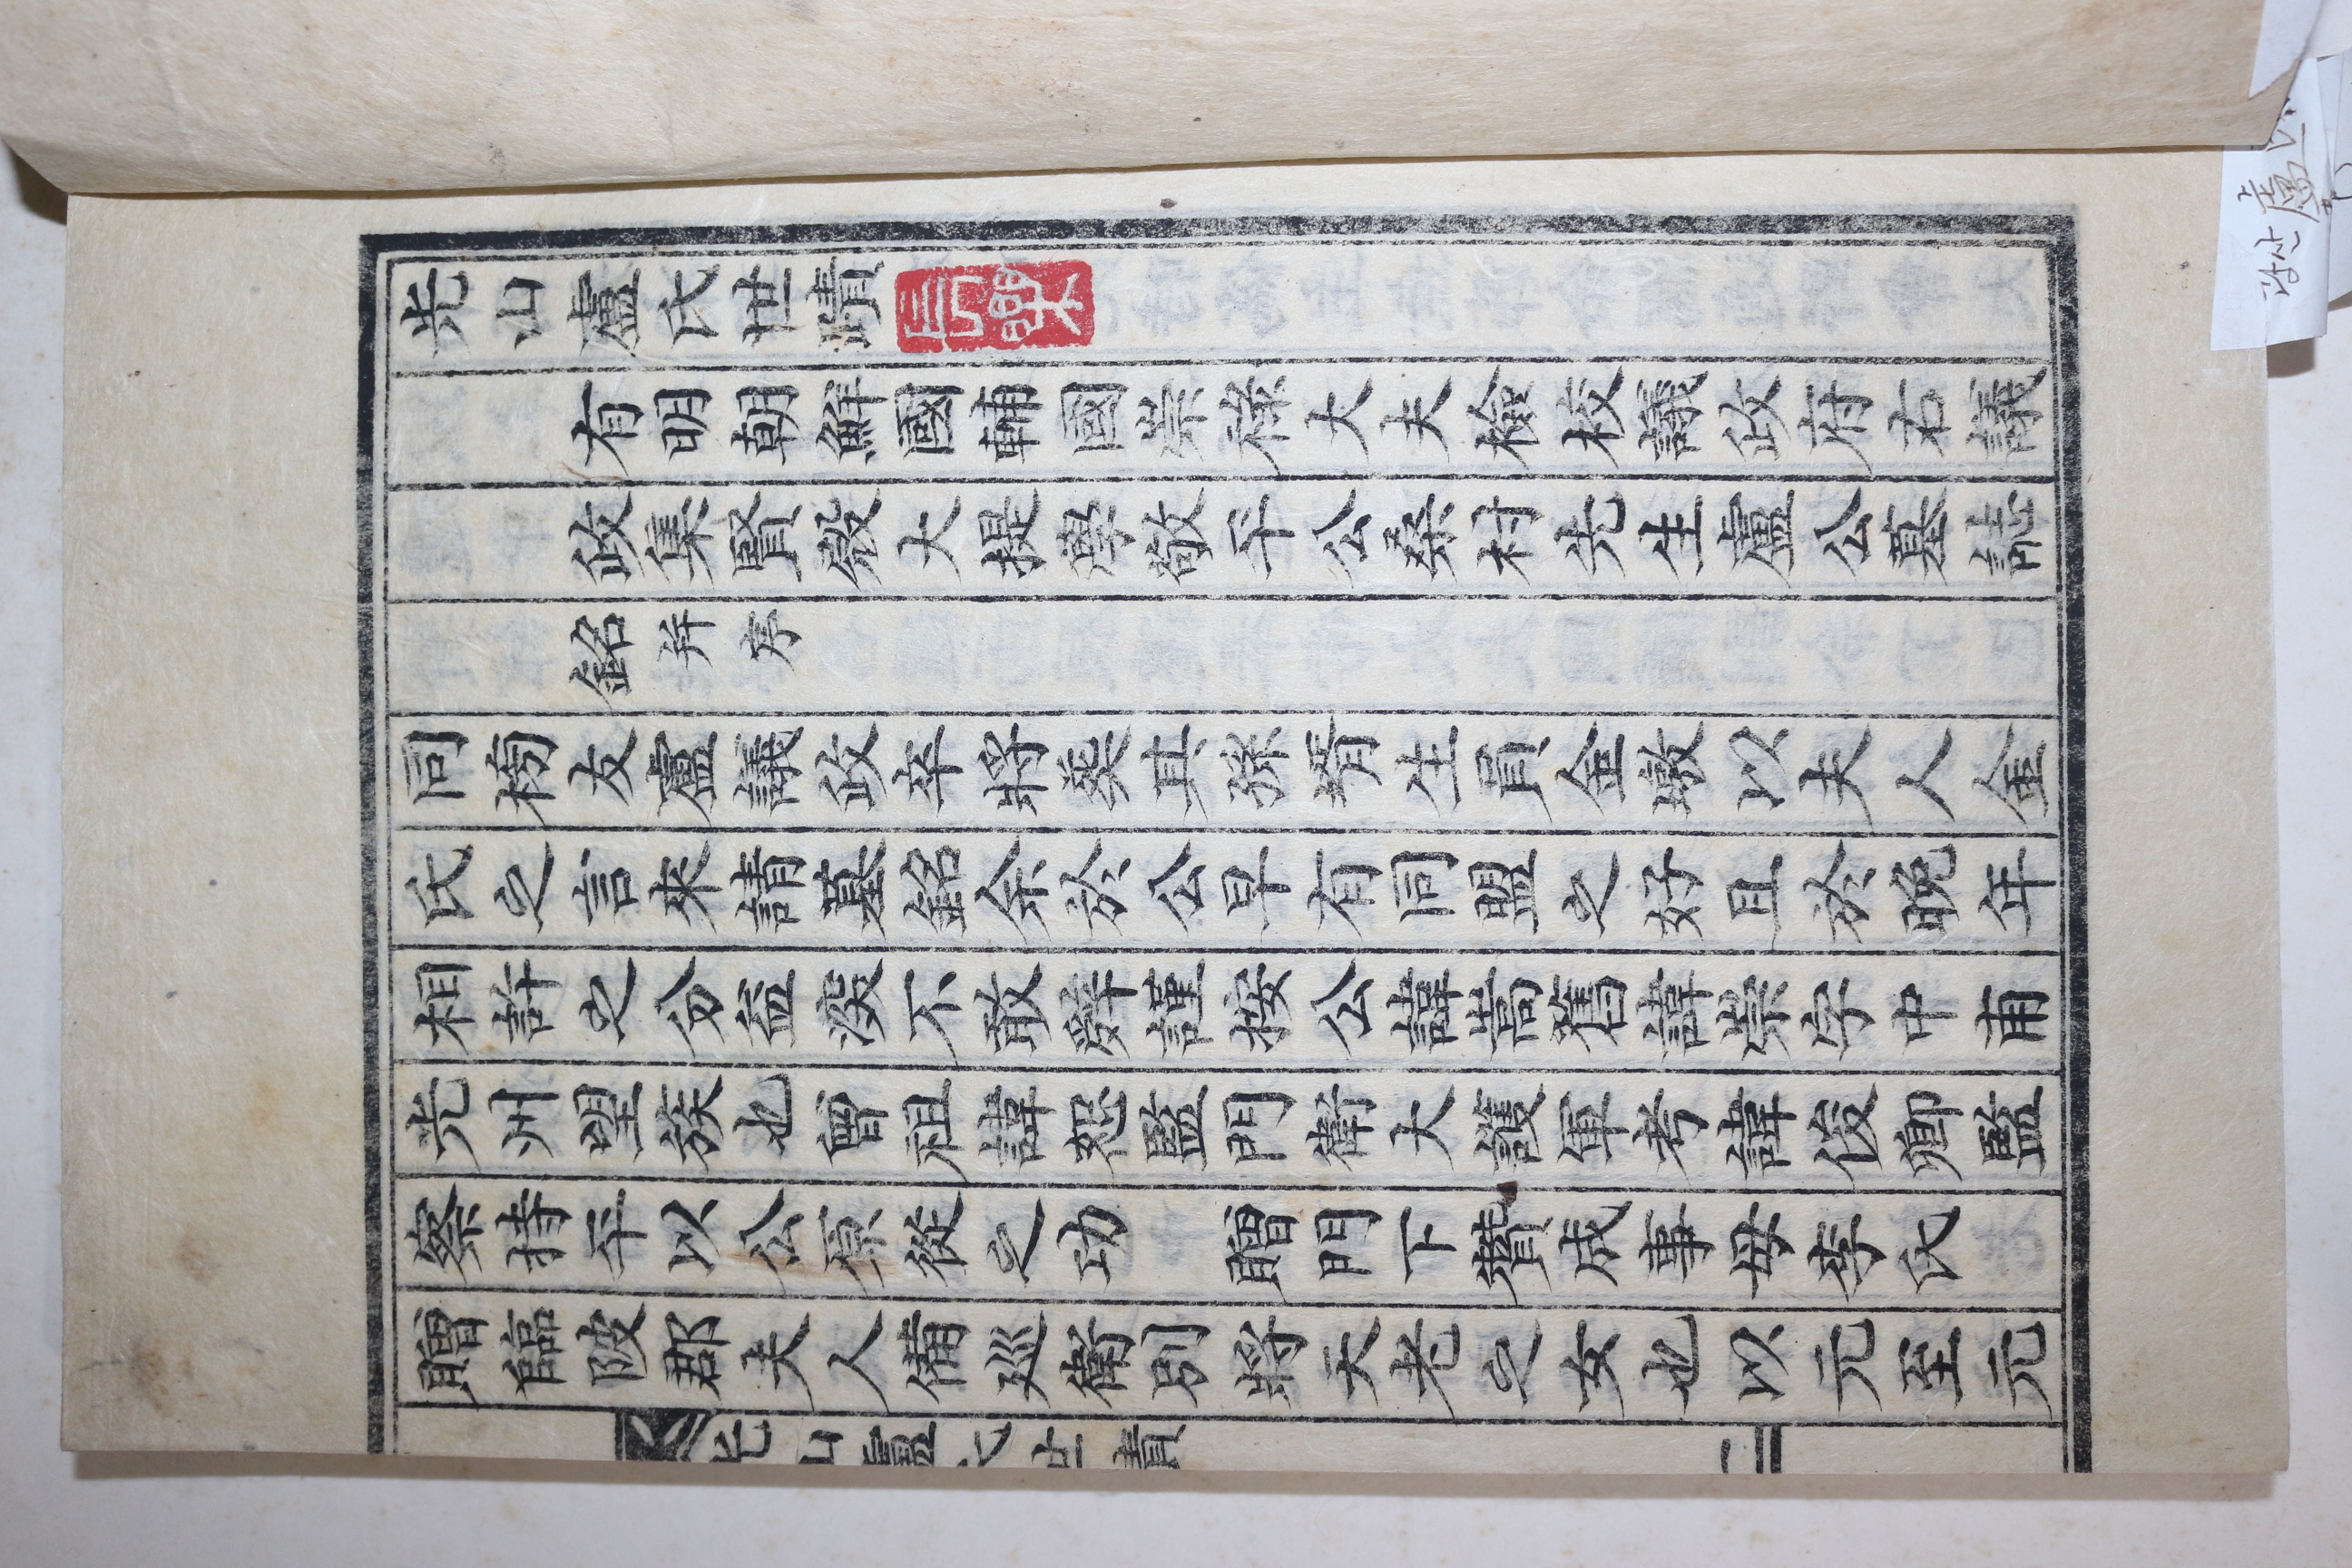 光山盧氏世蹟
有明朝鮮國輔國崇祿大夫檢校議政府右議
政集賢殿大提學敬平公桑村先生盧公墓誌
銘并序
同榜友盧議政卒將葬其孫婿生員金墩以夫人金
氏之言來請墓銘余於公早有同盟之好且於晩年
相許之分益深不敢辞謹按公諱嵩舊諱崇字中甫
光州望族也曾祖諱恕監門衛大護軍考諱俊卿監
察持平以公原從之功 贈門下贊成事母李氏
贈臨陂郡夫人備巡衛別將天老之女也以元至元
光山盧氏世蹟